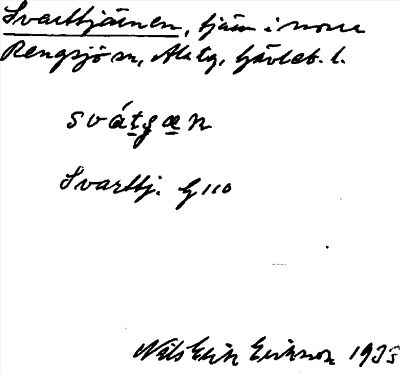 Svarttjärnen, tjärn i norra
Rengsjö sn, Alfta, Gävleb. l.
svátgæn
Svarttj. G 110
Nils Erik Eriksson 1935